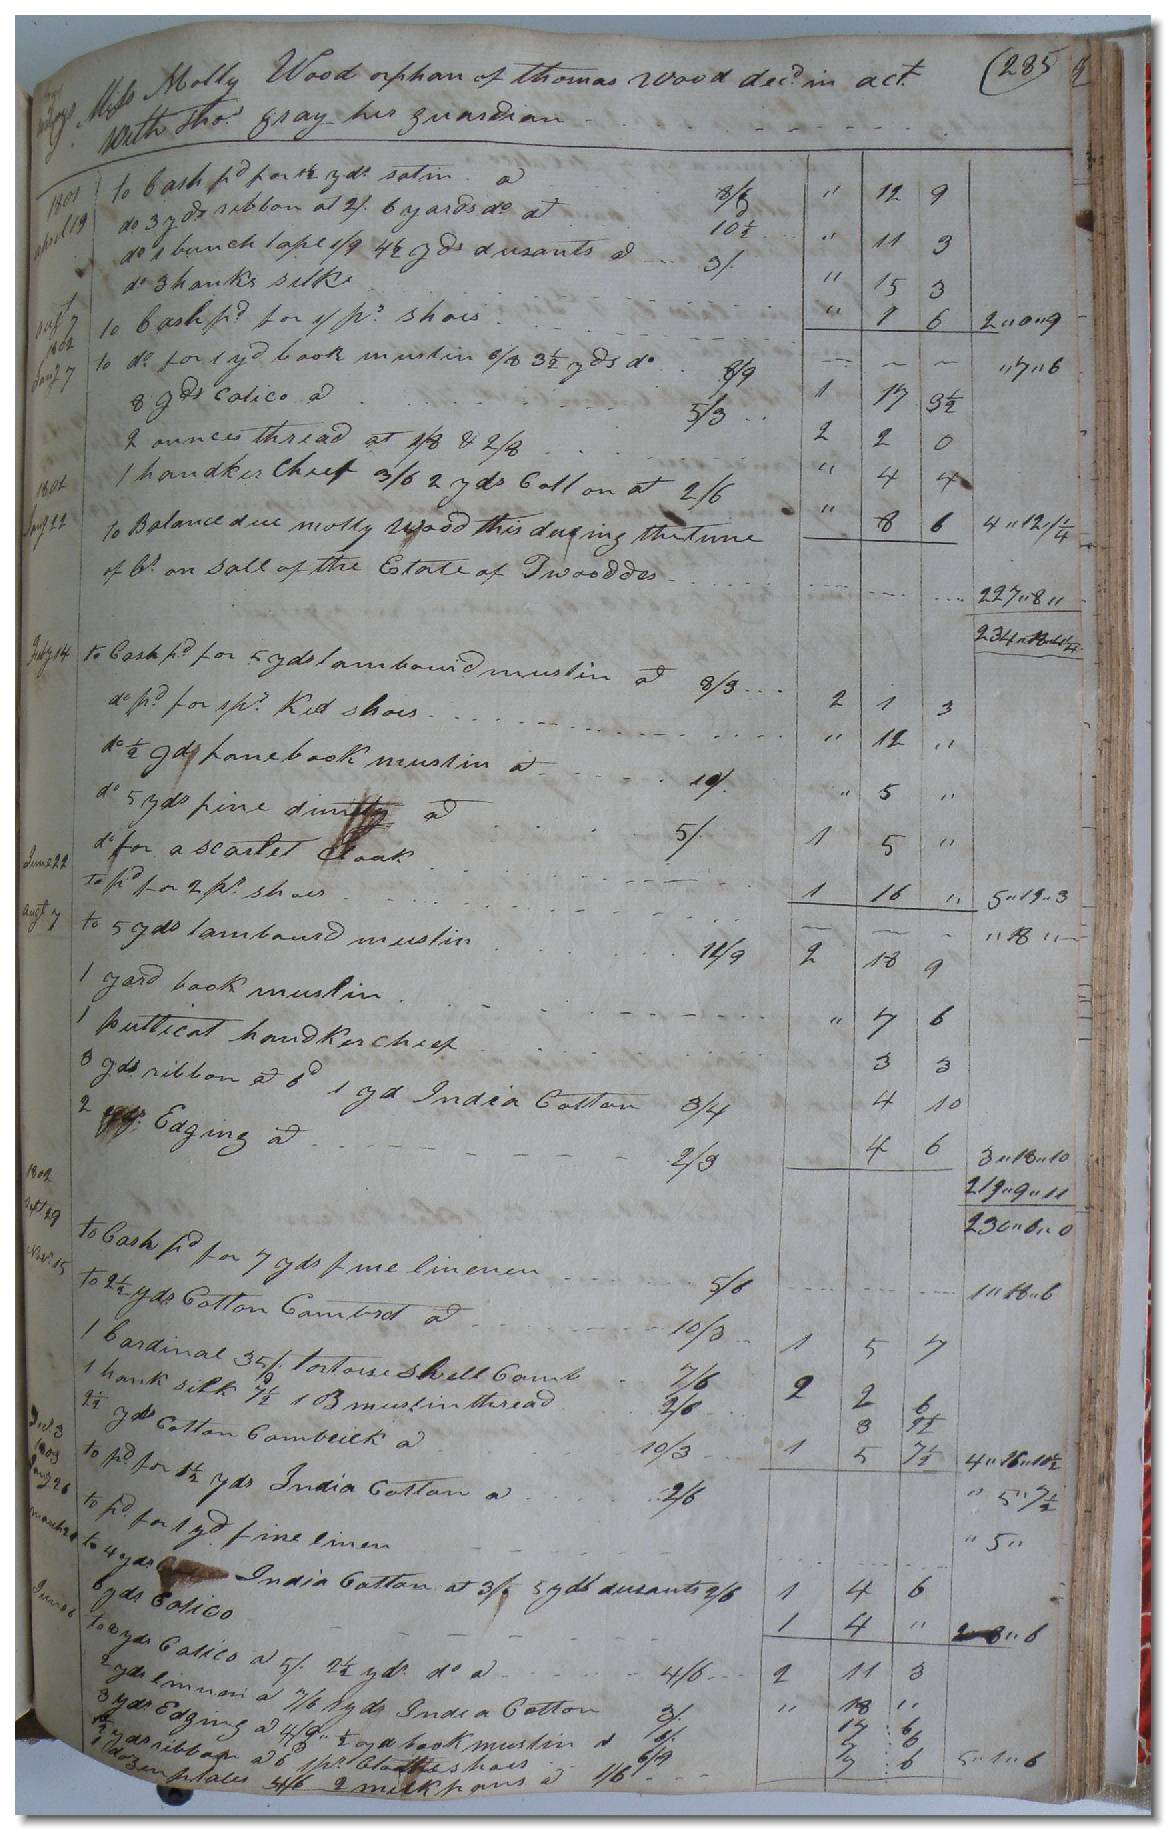 (285
Miss Molly Wood orphan of thomas wood decd. in act.
With Thos. gray her guardian
1801 april 19 to Cash pd for 1½ yds. satin a 8/6 " 12 9
do 3 yds ribbon at 2/. 6 yards do at 10½ " 11 3
do 1 bunch tape 1/9 4½ yds durants a 3/. " 15 3
do 3 hanks silk " 1 6 2"0"9
7 to Cash pd. for 1 pr. shoes "7"6
1802 Jany 7 to do. for 1 yd book muslin 6/8 3½ yds do 8/9 1 17 3½
8 yds Calico a 5/3 2 2 0
2 ounces thread at 1/8 & 2/8 " 4 4
1 handkerchief 3/6 2 yds Cotton at 2/6 " 8 6 4"12"1¼
1802 Jany 22 to Balance due molly Wood this during the time
of Ct. on Sall of the Estate of T wood des 227"8"
Feby 14 to Cash pd. for 5 yds tambourd muslin a 8/3 2 1 3
do pd. for 1 pr. Kid shoes " 12 "
do ½ yd fane book muslin a 10/. " 5 "
do 5 yds fine dimity a 5/. 1 5 "
do for a scarlet Cloak 1 16 " 5"19"3
June 22 to pd for 2 pr. shoes "18"
augt 7 to 5 yds tambourd muslin 11/9 2 18 9
1 yard book muslin " 7 6
1 pullicat handkerchief 3 3
3 yds. ribbon a 6d 1 yd India Cotton 3/4 4 10
2 yds. Edging a 2/3 4 6 3"18"10
219"9"11
230"6"0
1802 29 to Cash pd for 7 yds fine linenen 5/6 1"18"6
Novr. 15 to 2½ yds. Cotton Cambrd a 10/3 1 5 7
1 Cardinal 35/. tortoise shell Comb 7/6 2 2 6
1 hank silk 7½ 1 B muslin thread 2/6 3 1½
2½ yds Cotton Cambrick a 10/3 1 5 7½ 4"16"10½
3 to pd for 1½ yds India Cotton a 2/6 " 5"7½
1803 Jany 26 to pd. for 1 yd. fine linen " 5"
march to 4 yds. India Cotton at 3/ 5 yds durants 2/6 1 4 6
6 yds Calico 1 4 " 6
June 6 to yds Calico a 5/. 2½ yds. do a 4/6 2 11 3
2 yds linnen a 7/6 1 yds India Cotton 3/. " 18 "
3 yds. Edging a 4/9 ½ yd book muslin a 17 6
yds ribbon a 6d 1 pr. shoes 6/9 7 6 5"1"6
1 dozen plates 4/6 2 milk pans a 1/6